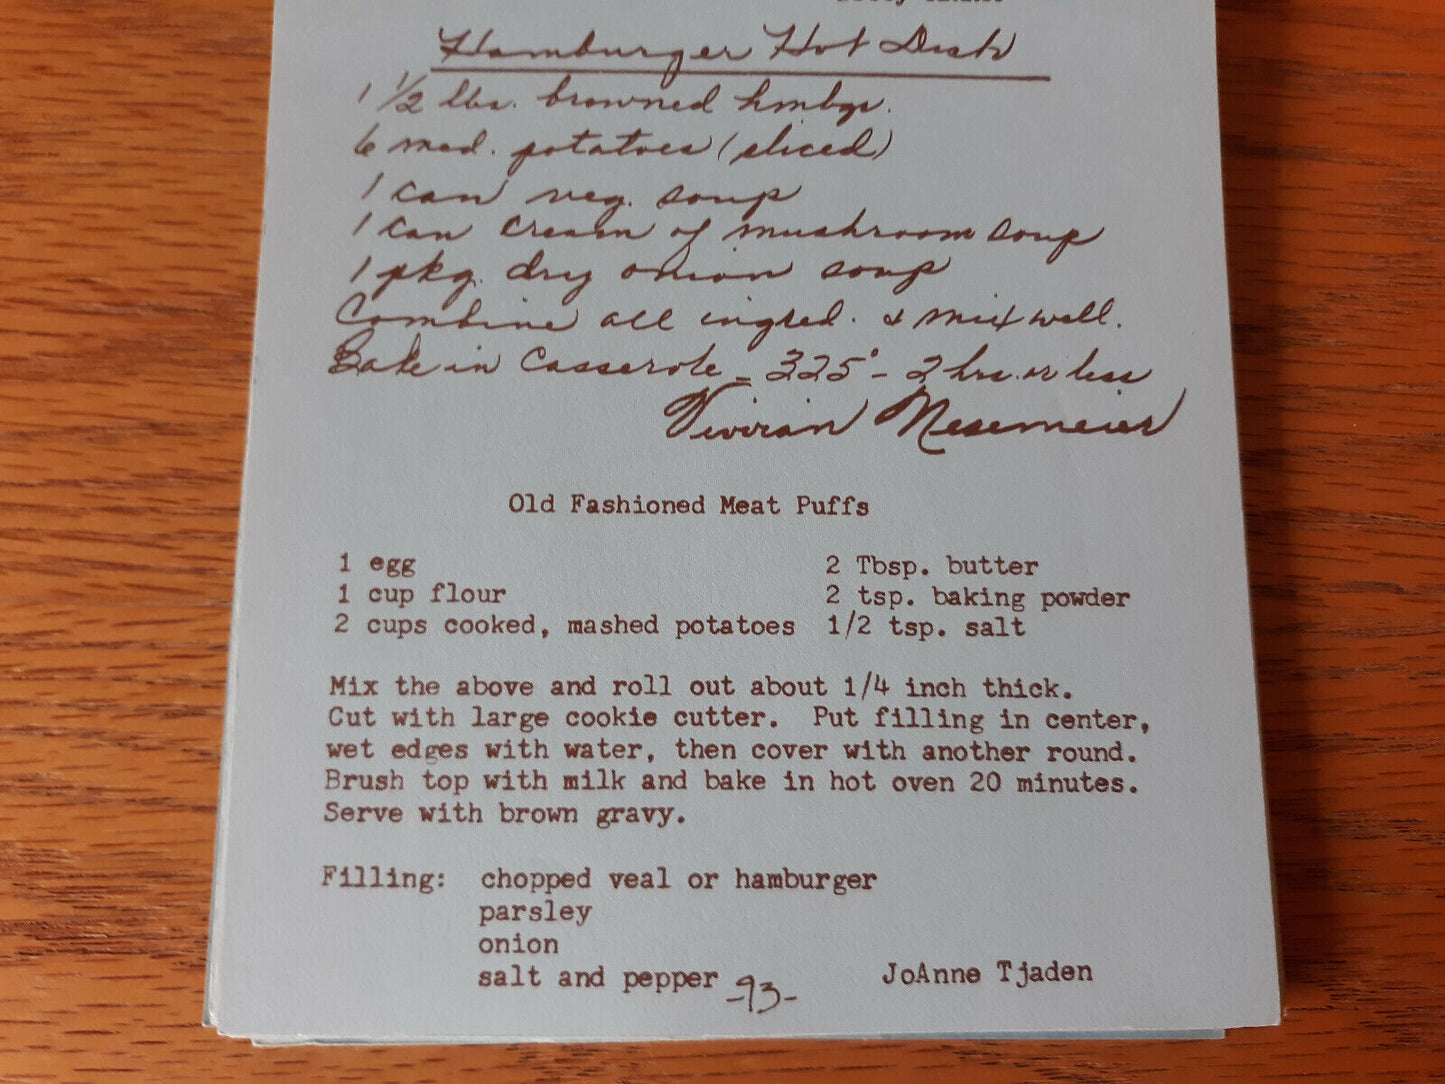 Hamburger Hot Dish
1 1/2 lbs. browned hmbgr.
6 med. potatoes (sliced)
1 can veg. soup
1 can cream of mushroom soup
1 pkg. dry onion soup
Combine all ingred. & mix well.
Bake in Casserole - 325° - 2 hrs. or less
Vivian Nesemeier
Old Fashioned Meat Puffs
1 egg 2 Tbsp. butter
1 cup flour 2 tsp. baking powder
2 cups cooked, mashed potatoes 1/2 tsp. salt
Mix the above and roll out about 1/4 inch thick.
Cut with large cookie cutter. Put filling in center,
wet edges with water, then cover with another round.
Brush top with milk and bake in hot oven 20 minutes.
Serve with brown gravy.
Filling: chopped veal or hamburger
parsley
onion
salt and pepper
JoAnne Tjaden
-93-